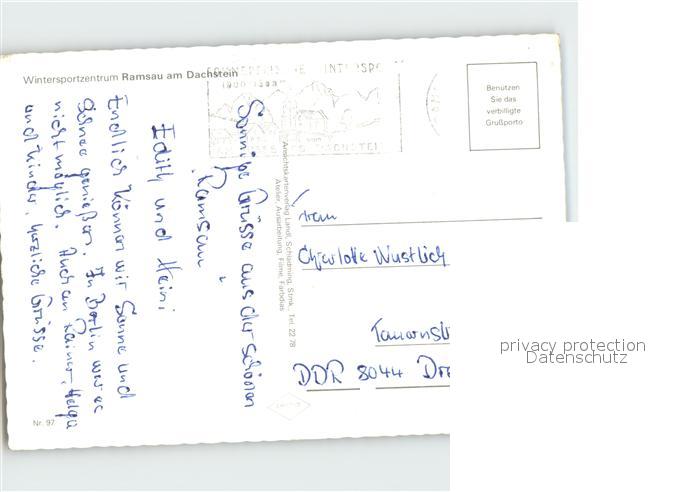 Wintersportzentrum Ramsau am Dachstein
Benutzen
Sie das
verbilligte
Grußporto
Sonnige Grüsse aus der schönen
Ramsau
Edith und Heini
Endlich können wir Sonne und
Schnee genießen. In Berlin war es
nicht möglich. Auch an Rainer, Helga
und Kinder, herzliche Grüsse.
Ansichtskartenverlag Landl, Schladming, Stmk., Tel. 22 78
Atelier, Ausarbeitung, Filme, Farbdias
Frau
Charlotte Wustlich
DDR 8044 Dre
Nr. 97
privacy protection
Datenschutz